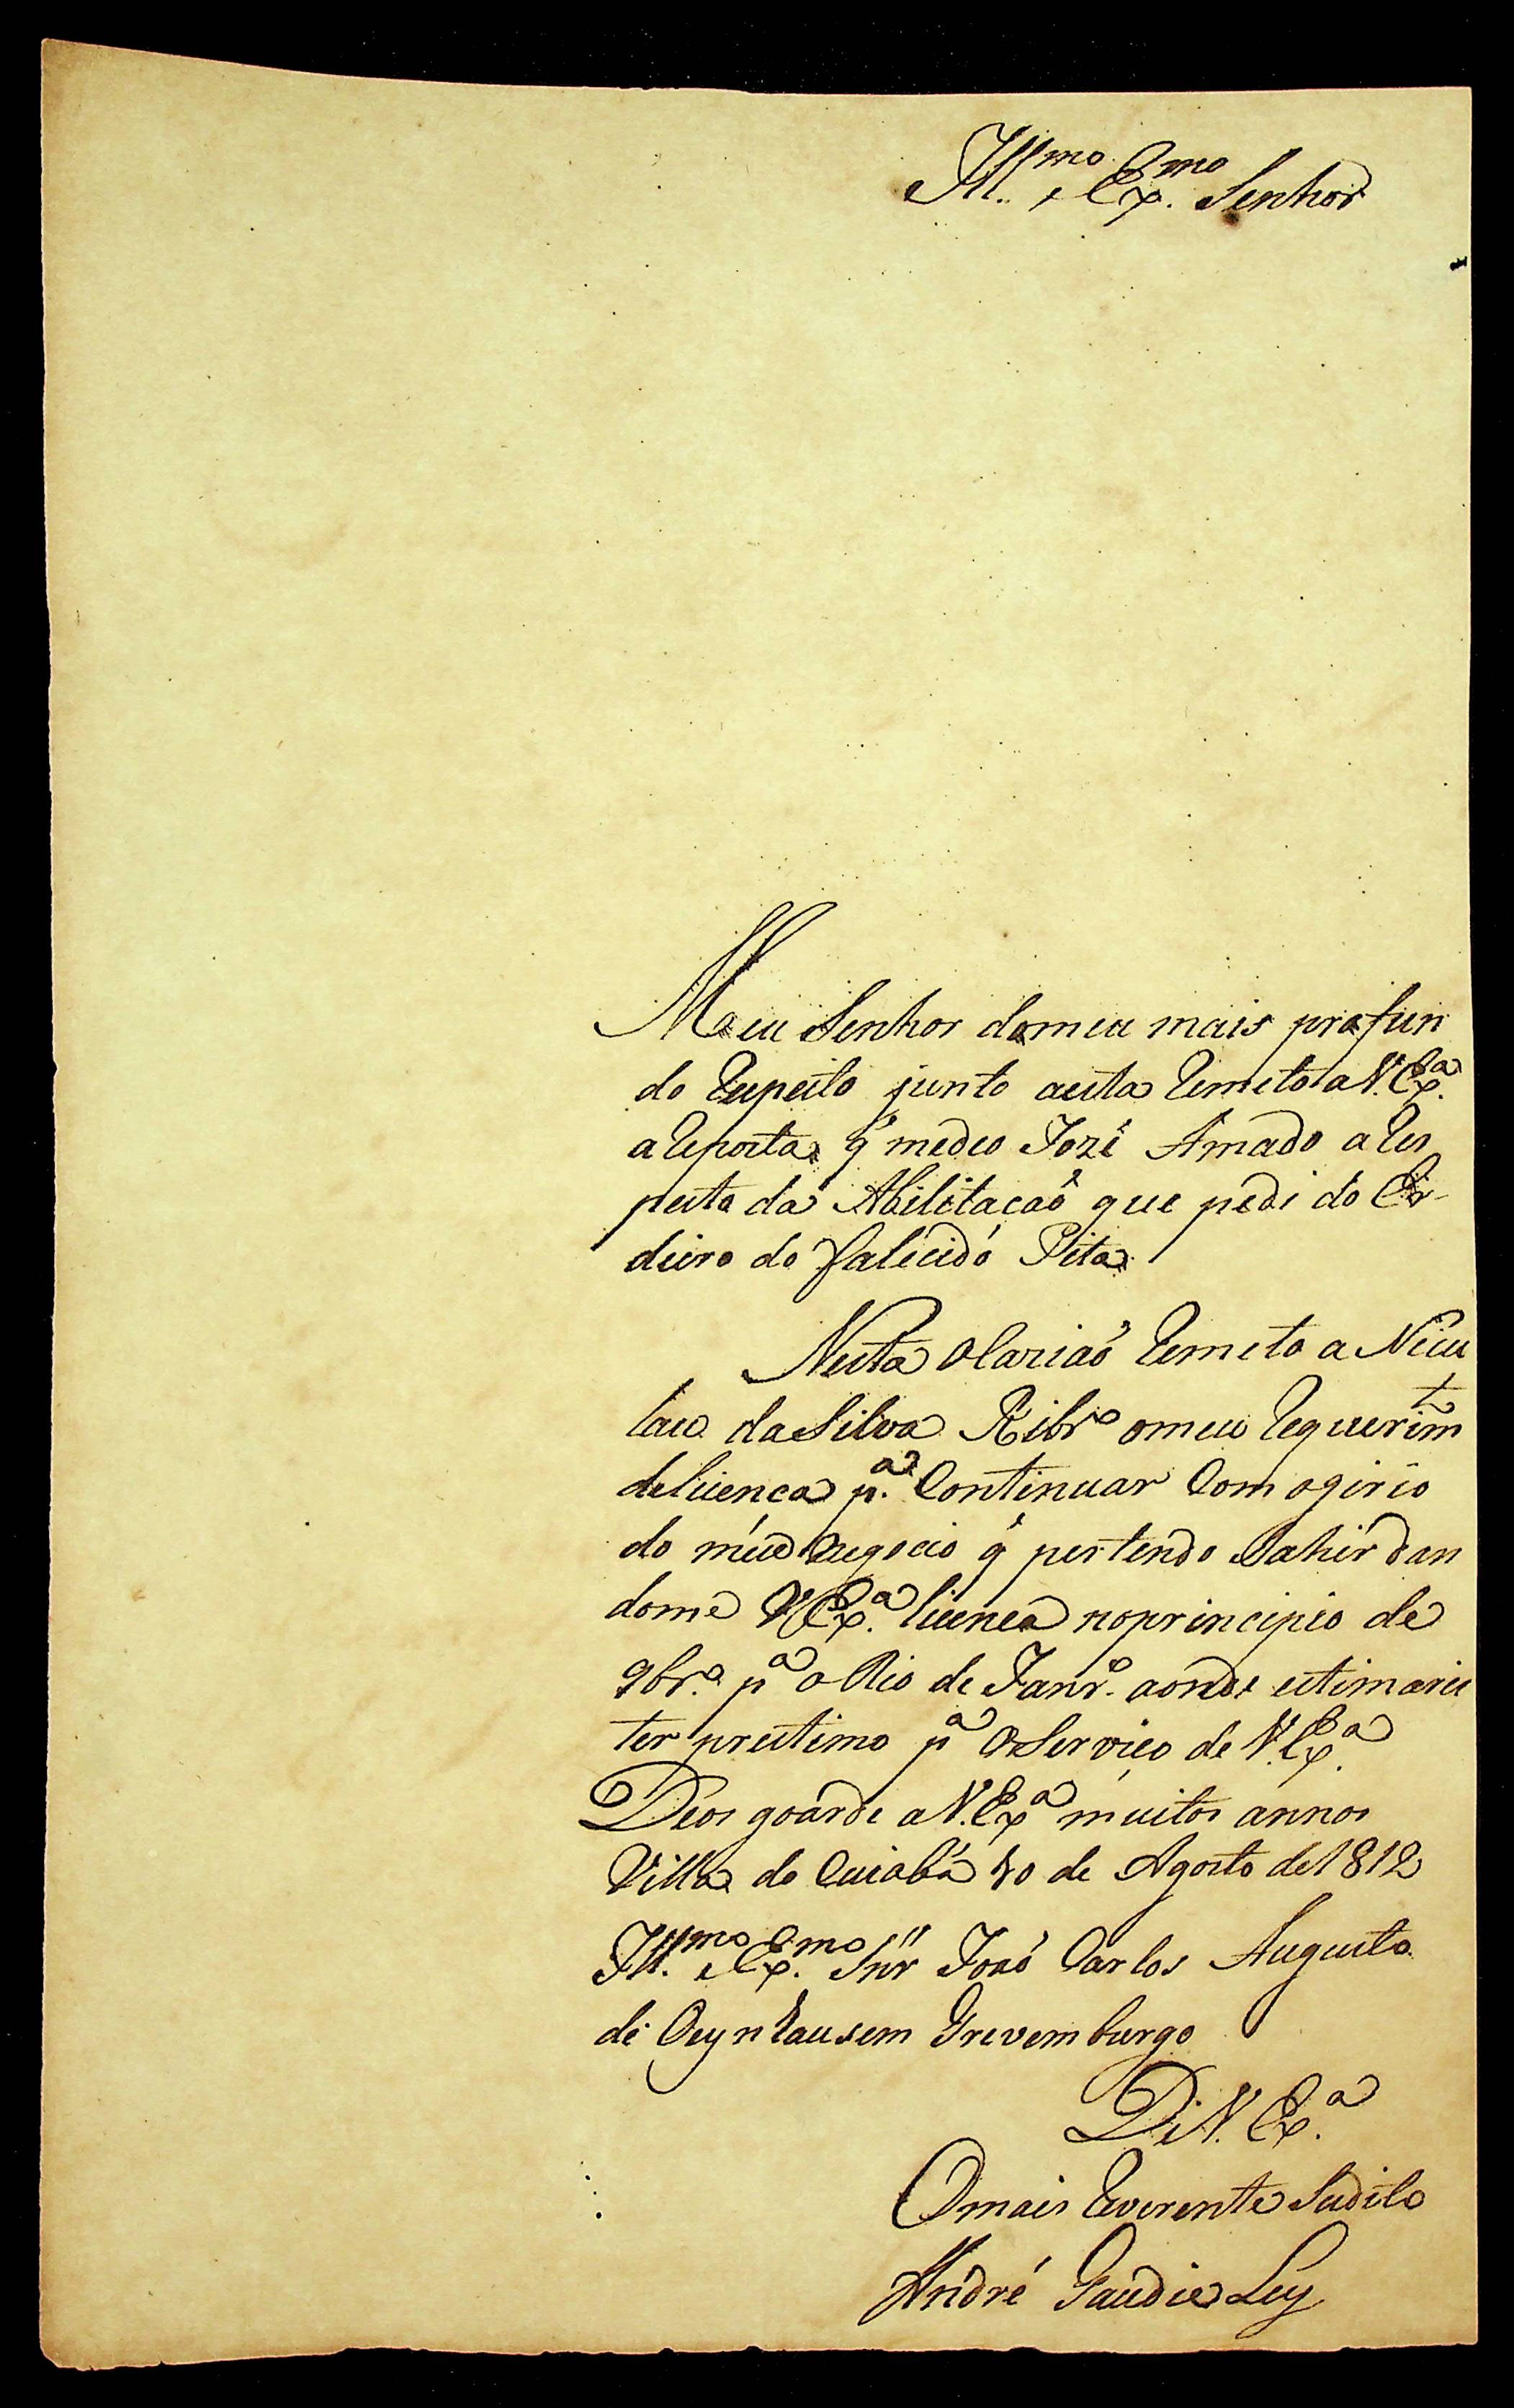 Ill.mo e Ex.mo Senhor
Meu Senhor domeu mais profun
do Respeito junto aesta Remeto a V. Ex.a
a Resposta q' medeo Jozé Amado a Res
peito da Abilitacaõ que pedi do Er-
deiro do falicido Pita
Nesta olariaõ Remeto a Nicu
lau da Silva Ribr.o omeu Requerim.t
delicenca p.a Continuar Com ogirio
do meu negocio q' pertendo Sahir dan
dome V Ex.a licenca noprincipio de
9br.o p.a o Rio de Janr.o aonde estimarei
ter prestimo p.a o Serviço de V. Ex.a
Deos goarde a V. Ex.a muitos annos
Villa do Cuiabá 10 de Agosto de 1812
Ill.mo e Ex.mo Snr Joaõ Carlos Augusto
de Oeynhausem Grevemburgo
De V. Ex.a
O mais Reverente Sudito
André Gaudie Ley